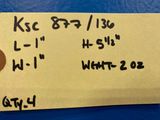 KSC 877/136
L-1" H-5 1/2"
W-1" WGHT-2 OZ
QTY.4